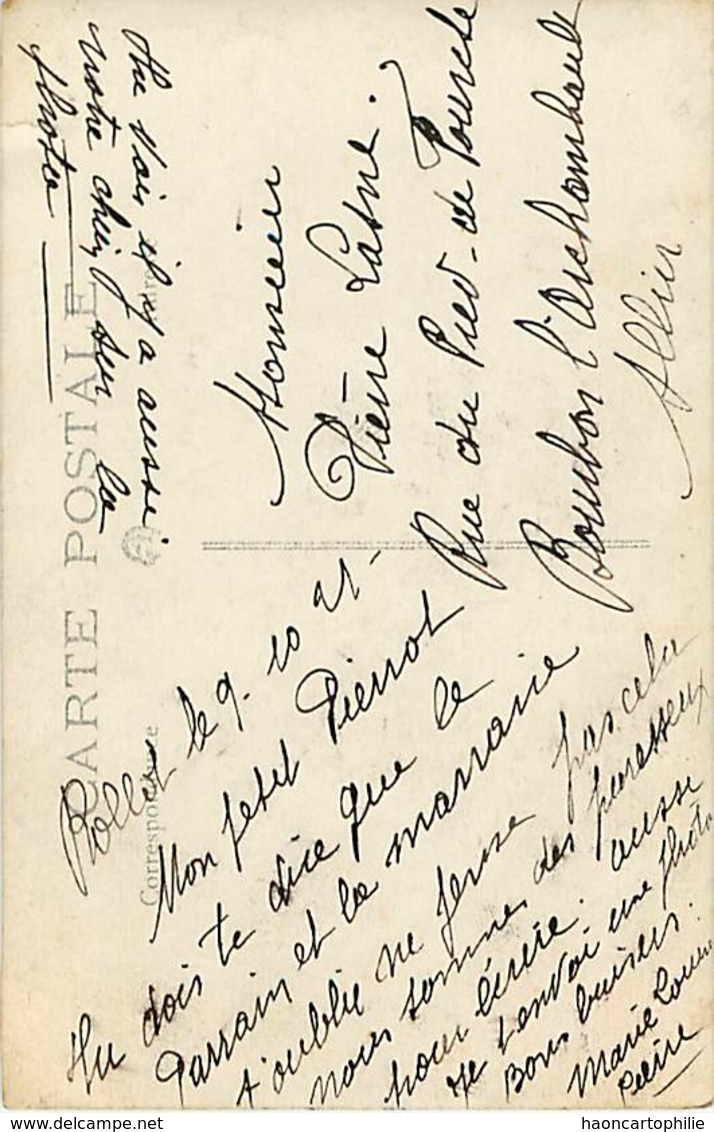 CARTE POSTALE
Correspondance
Adresse
Rollet le 9. 10 21-
Mon petit Pierrot
Tu dois te dire que le
Parrain et la marraine
t'oublie ne pense pas cela
nous sommes des paresseux
pour écrire. aussi
je t'envoi une photo
Bons baisers.
Marie Louise
Pierre
Monsieur
Pierre Lasne.
Rue du Pied-de Fourche
Bourbon l'Archambault
Allier
Tu vois il y a aussi
notre chien sur la
photo
haoncartophilie